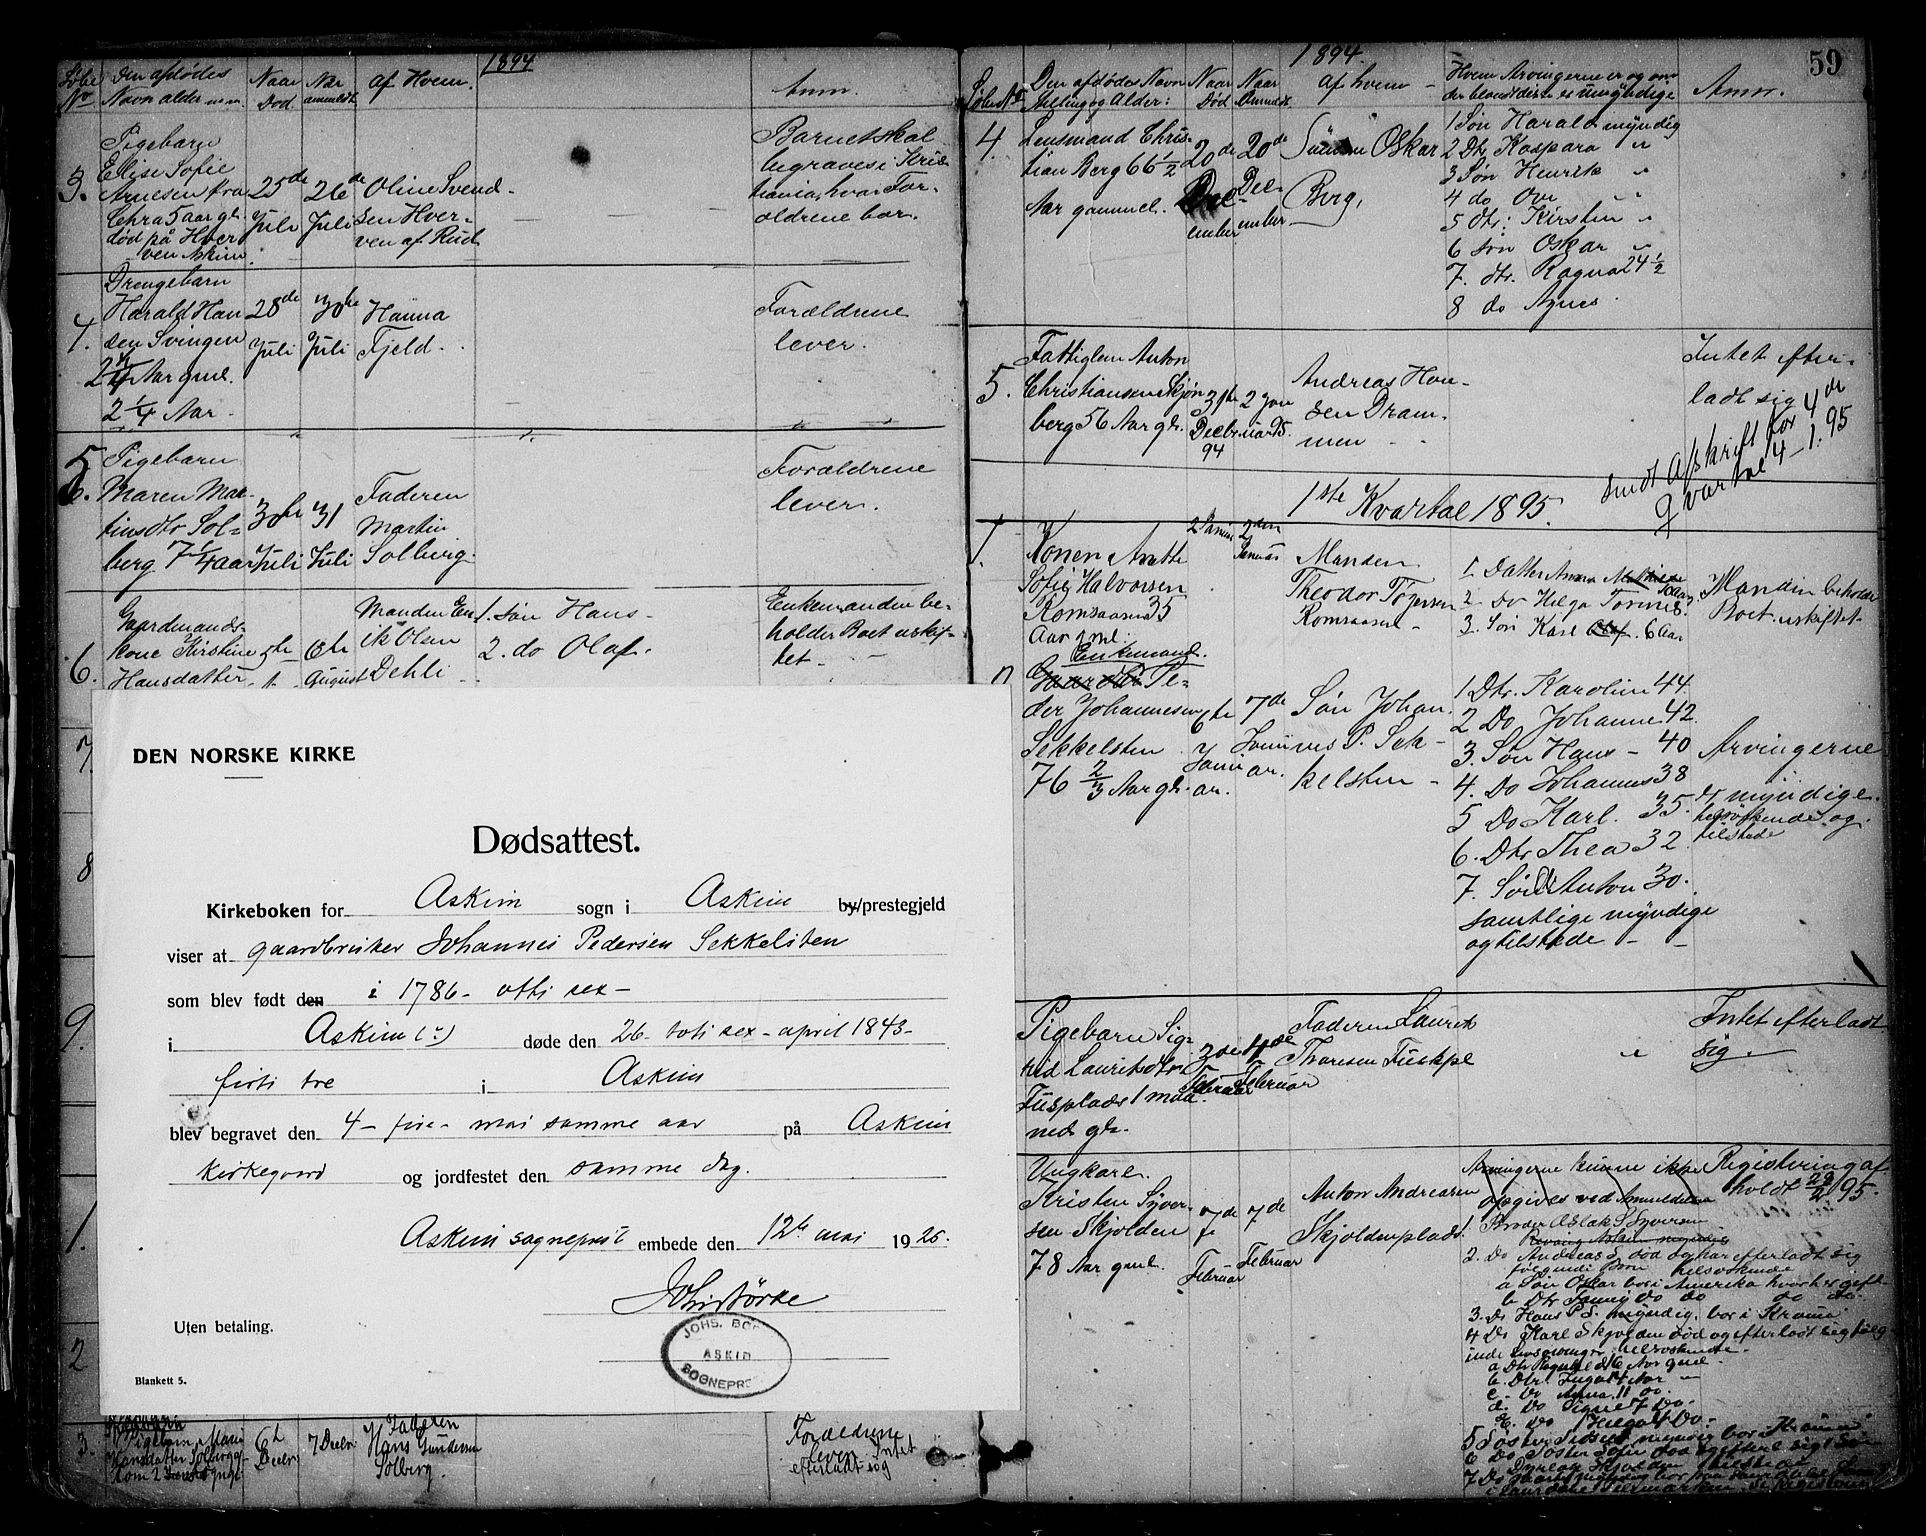 1894
Løbe Den afdødes Naar Naar af Hvem. Anm.
No Navn alder m.m. Død anmeldt
Pigebarn
3. Elise Sofie
Arnesen fra 25de 26de Oline Svend-
Chra 5 aar gl. Juli Juli sen Hver-
død på Hver ven af Rud
ven Askim.
Barnet skal
begraves i Kris-
tiania, hvor For-
ældrene bor.
Drengebarn
4. Harald Han 28de 30te Hanna
sen Svingen Juli Juli Fjeld.
2 1/4 Aar gml.
2 1/4 Aar.
Forældrene
lever.
5. Pigebarn
Maren Mar- 30te 31 Faderen
tinsdtr Sol- Juli Juli Martin
berg 7 1/4 aar Solberg.
Forældrene
lever.
6. Gaardmands-
kone Kirstine 6te
Hansdatter August
Manden En
ik Olsen
Dehli
1. søn Hans
2. do Olaf.
Enkemanden be-
holder Boet uskif-
tet.
7.
8
9.
1.
2
DEN NORSKE KIRKE
Dødsattest.
Kirkeboken for Askim sogn i Askim by/prestegjeld
viser at gaardbruker Johannes Pedersen Sekkelsten
som blev født den i 1786 - otti sex -
i Askim (?) døde den 26 - toti sex - april 1843 -
firti tre i Askim
blev begravet den 4 - fire - mai samme aar på Askim
kirkegaard og jordfestet den samme dag.
Askim sogneprest embede den 12te mai 1926.
Johs Børke
Uten betaling.
JOHS. BØ
ASKIM
SOGNEPRE
Blankett 5.
3. Pigebarn Marie 6te 7 Decbr Faderen
Hansdatter Solberg Decbr Hans Gundersen
Solberg.
Forældrene
lever Intet
efterladt sig
59
1894.
Løbe No Den afdødes Navn Naar Naar af hvem Hvem Arvingerne er og om Anm.
Stilling og Alder: Død Anmeldt der blandt disse er Umyndige
4. Lensmand Chris- 20de 20de Sønnen Oskar
tian Berg 66 1/2 Dec- Dec- Berg.
Aar gammel. ember ember
1 Søn Harald myndig
2 Dtr Kaspara "
3 Søn Henrik "
4 do Ove "
5 Dtr: Kirsten "
6 søn Oskar
7. dtr. Ragna 24 1/2
8 do Agnes.
5. Fattiglem Anton
Christiansen Skjøn 31te 2 Jan Andreas Han-
berg 56 Aar gl. Decbr uar 95. sen Dram-
94 men
Intet efter-
ladt sig
sendt Afskrift for 4de
Qvartal 4-1-95
1ste Kvartal 1895.
1. Konen Anette 2 Januar 2den Manden
Sofie Halvorsen Januar Theodor Torgersen
Romsaasen 35 Romsaasen
Aar gml.
1. Datter Anna
2. Do Helga
3. Søn Karl Olaf. 6 Aar
Manden beholder
Boet uskiftet
Enkemand.
Pe-
der Johannesen 6te 7de Søn Johan
Sekkelsten Janu- Janu nes P. Sek-
76 2/3 Aar gl. ar. ar. kelsten
1 Dtr. Karoline 44.
2 Do Johanne 42.
3. Søn Hans - 40
4. Do Johannes 38
5 Do Karl. 35.
6. Dtr Thea 32
7. Søn Anton 30.
samtlige myndige
og tilstede
Arvingerne
er myndige.
helsøskende og
tilstede
Pigebarn Sig-
rid Lauritsdtr. 3de 4de Faderen Laurits
Fusplads 1 maa- Februar Februar Thoresen Fuskpl
ned gl.
" Intet efterladt
sig.
Ungkarl
Kristen Syver-
sen Skjolden 7de 7de Anton Andreasen
78 Aar gml. Februar Februar Skjoldenplads
Arvingerne kunne ikke
opgives ved Anmeldelsen
1. Broder Aslak S Syversen
2. Do Andreas S. død og har efterladt sig
følgende Børn helsøskende
a Søn Oskar bor i Amerika
b Dtr Fanny do do do do.
3. Do Hans P S. myndig, bor i Krania
4 Do Karl Skjolden død og efterladt sig følg-
ende Livsarvinger: helsøskende.
a Dtr Ragnhild 16 Aar gml.
b. Dtr. Inga 14 Aar
c. Do Anna 11 do.
d. Do Signe 7 Do.
E. Do Helga 4 Do.
Registrering af-
holdt 22/2 95.